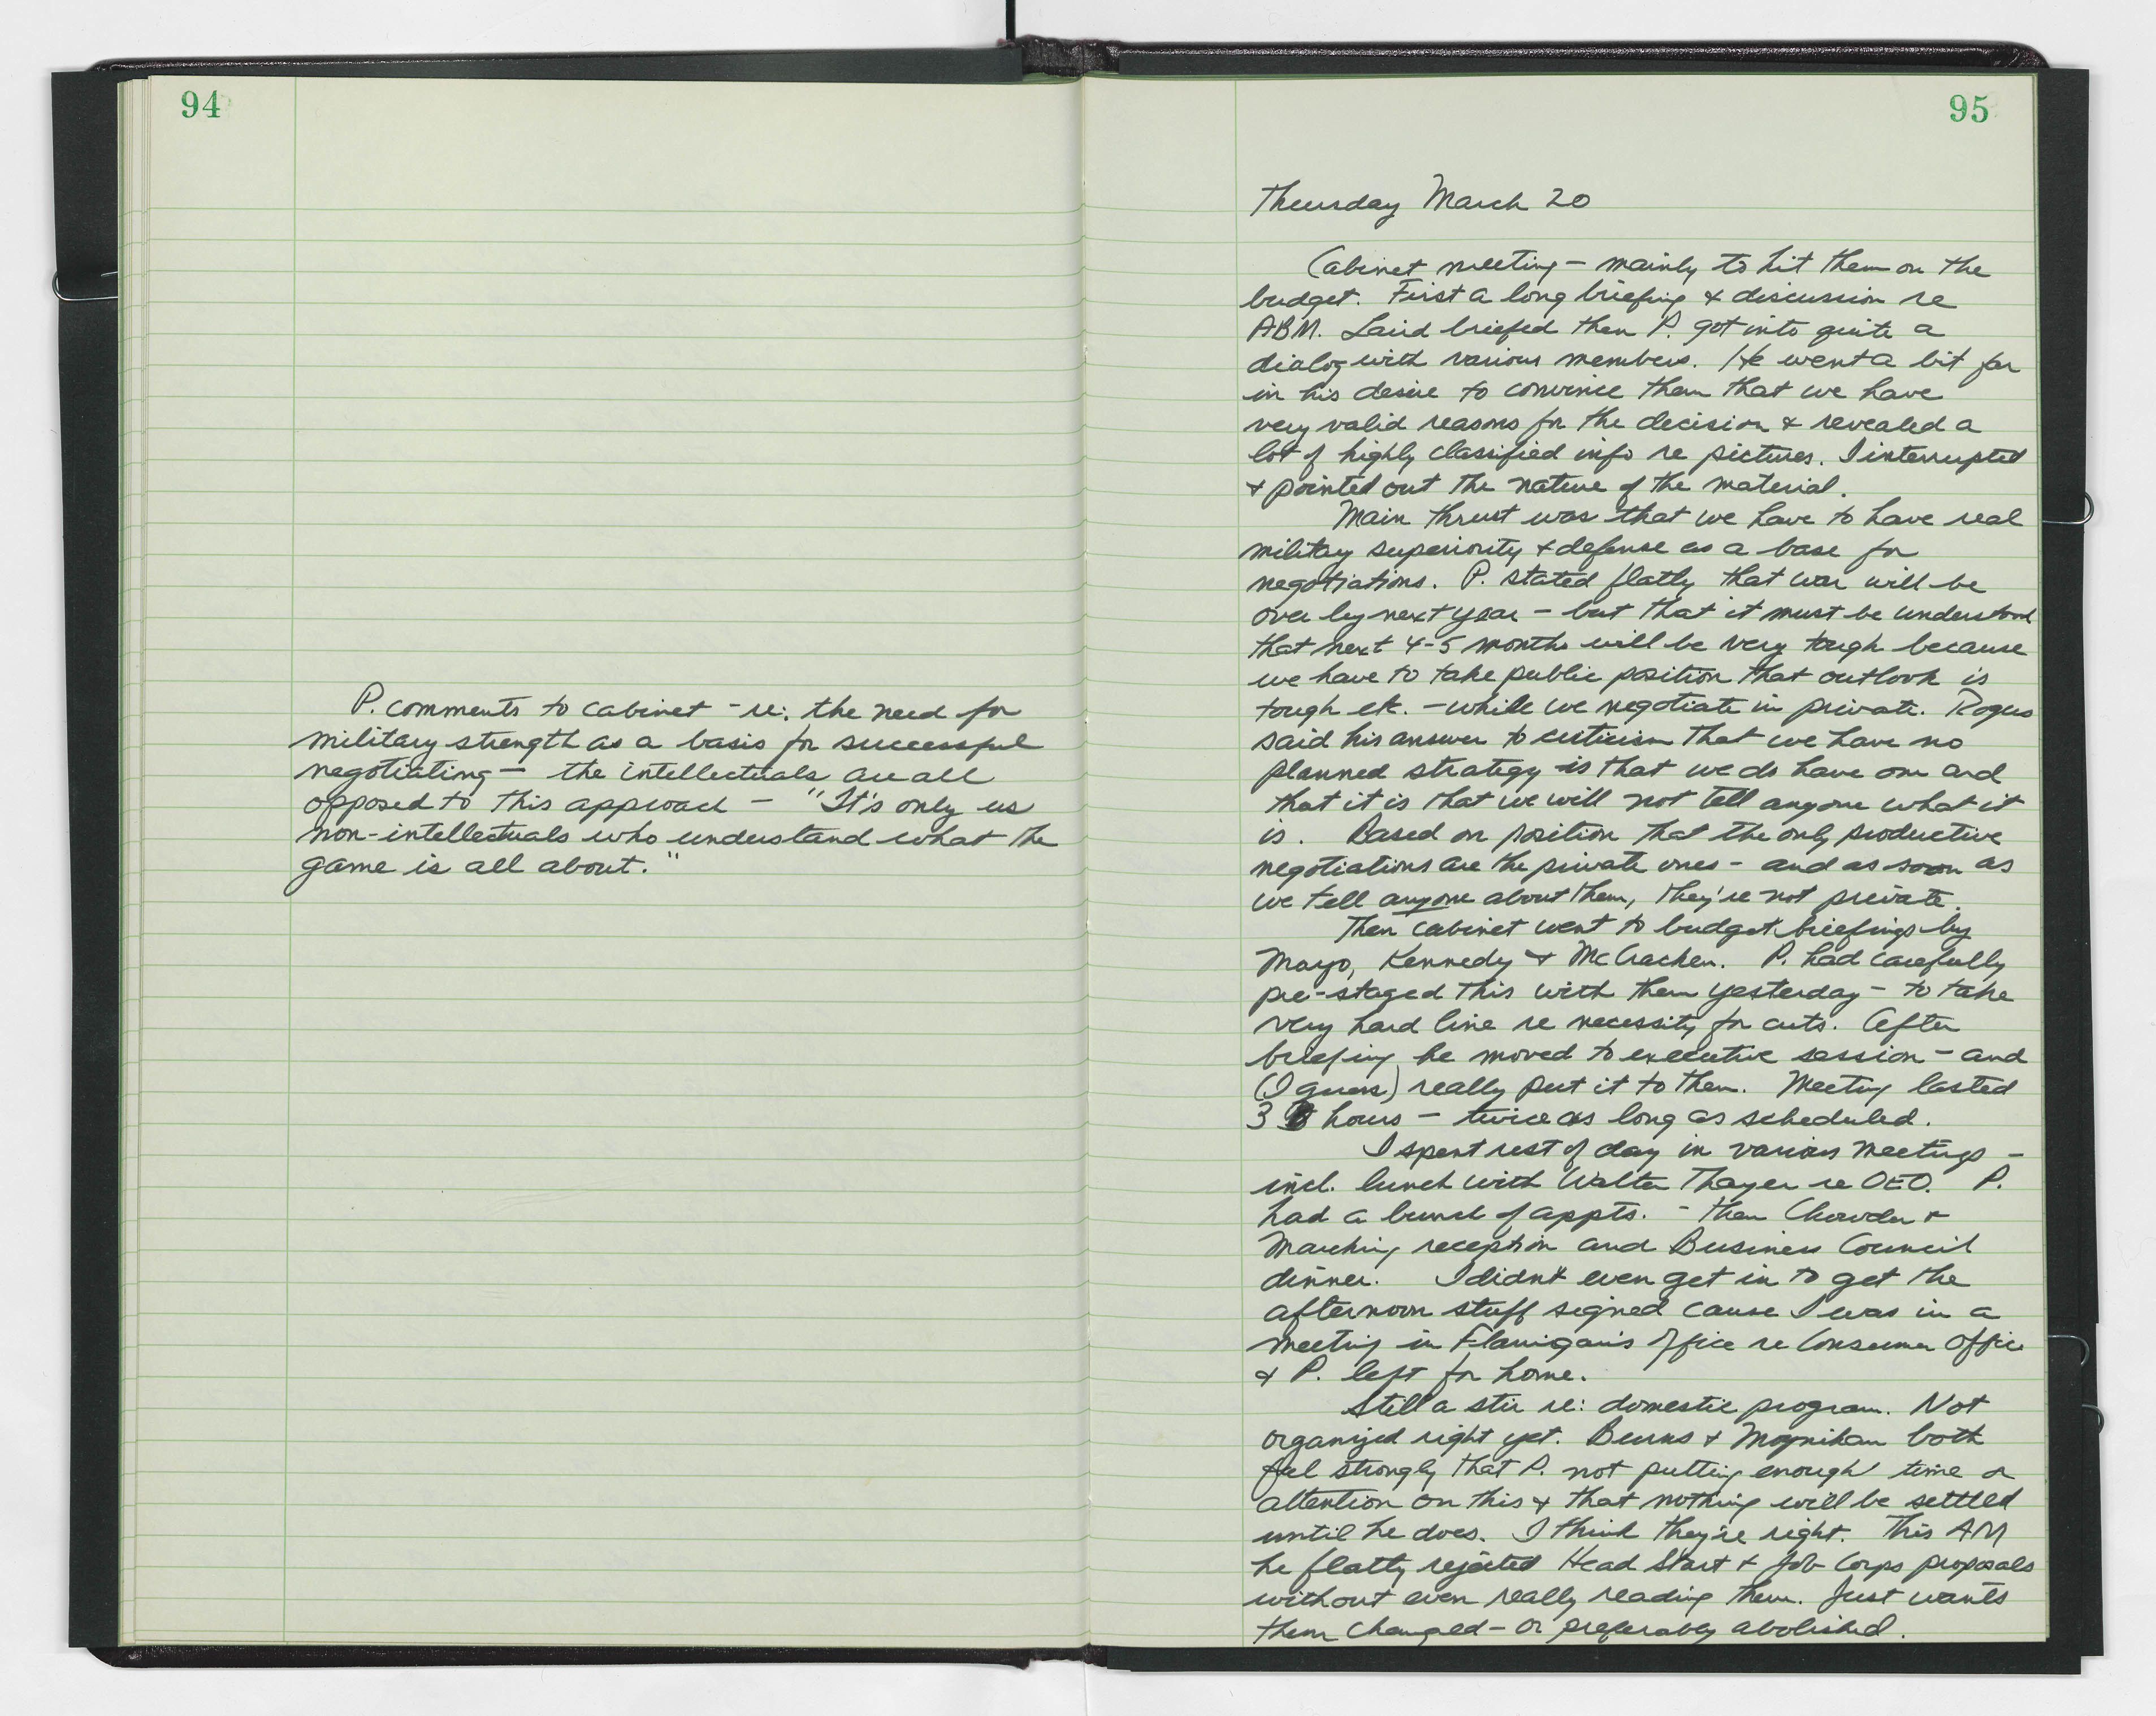 94
P. comments to cabinet - re: the need for
military strength as a basis for successful
negotiating — the intellectuals are all
opposed to this approach — "It's only us
non-intellectuals who understand what the
game is all about."
95
Thursday March 20
Cabinet meeting — mainly to hit them on the
budget. First a long briefing & discussion re
ABM. Laird briefed then P. got into quite a
dialog with various members. He went a bit far
in his desire to convince them that we have
very valid reasons for the decision & revealed a
lot of highly classified info re pictures. I interrupted
& pointed out the nature of the material.
Main thrust was that we have to have real
military superiority & defense as a base for
negotiations. P. stated flatly that war will be
over by next year — but that it must be understood
that next 4-5 months will be very tough because
we have to take public position that outlook is
tough etc. — while we negotiate in private. Rogers
said his answer to criticism that we have no
planned strategy is that we do have one and
that it is that we will not tell anyone what it
is. Based on position that the only productive
negotiations are the private ones - and as soon as
we tell anyone about them, they're not private.
Then cabinet went to budget briefings by
Mayo, Kennedy & McCracken. P. had carefully
pre-staged this with them yesterday - to take
very hard line re necessity for cuts. After
briefing he moved to executive session - and
(I guess) really put it to them. Meeting lasted
3 hours — twice as long as scheduled.
I spent rest of day in various meetings -
incl. lunch with Walter Thayer re OEO. P.
had a bunch of appts. - then Chowder &
Marching reception and Business Council
dinner. I didn't even get in to get the
afternoon stuff signed cause I was in a
meeting in Flanigan's office re Consumer Office
& P. left for home.
Still a stir re: domestic program. Not
organized right yet. Burns & Moynihan both
feel strongly that P. not putting enough time or
attention on this & that nothing will be settled
until he does. I think they're right. This AM
he flatly rejected Head Start & Job Corps proposals
without even really reading them. Just wants
them changed — or preferably abolished.